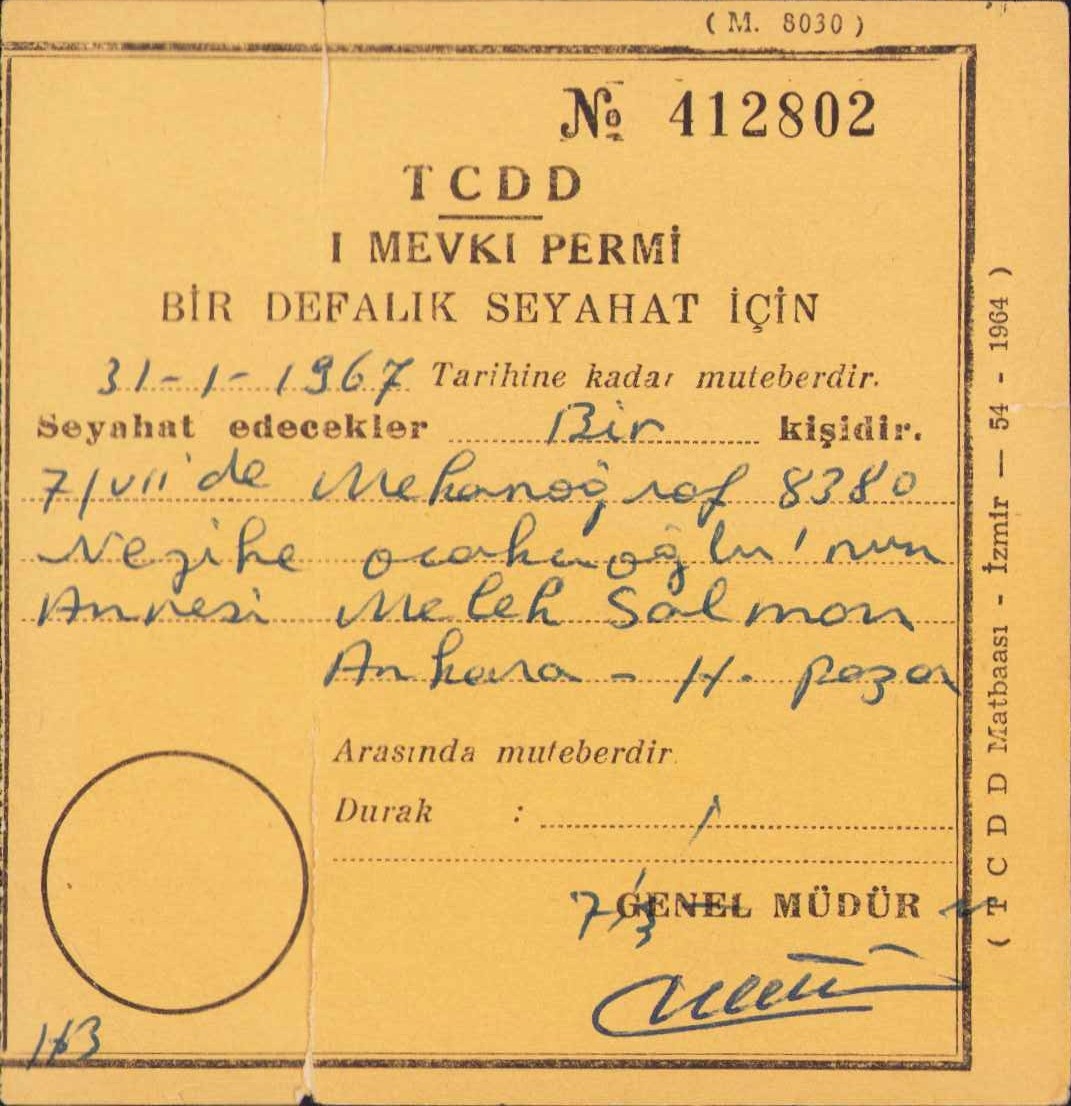 ( M. 8030 )
№ 412802
TCDD
I MEVKI PERMİ
BİR DEFALIK SEYAHAT İÇİN
31-1-1967 Tarihine kadar muteberdir.
Seyahat edecekler Bir kişidir.
7/VII'de Mekanoğraf 8380
Nezihe ocakcıoğlu'nun
Annesi Melek Salman
Ankara - H. pazar
Arasında muteberdir.
Durak : 1
GENEL MÜDÜR
163
( T C D D Matbaası - İzmir — 54 - 1964 )